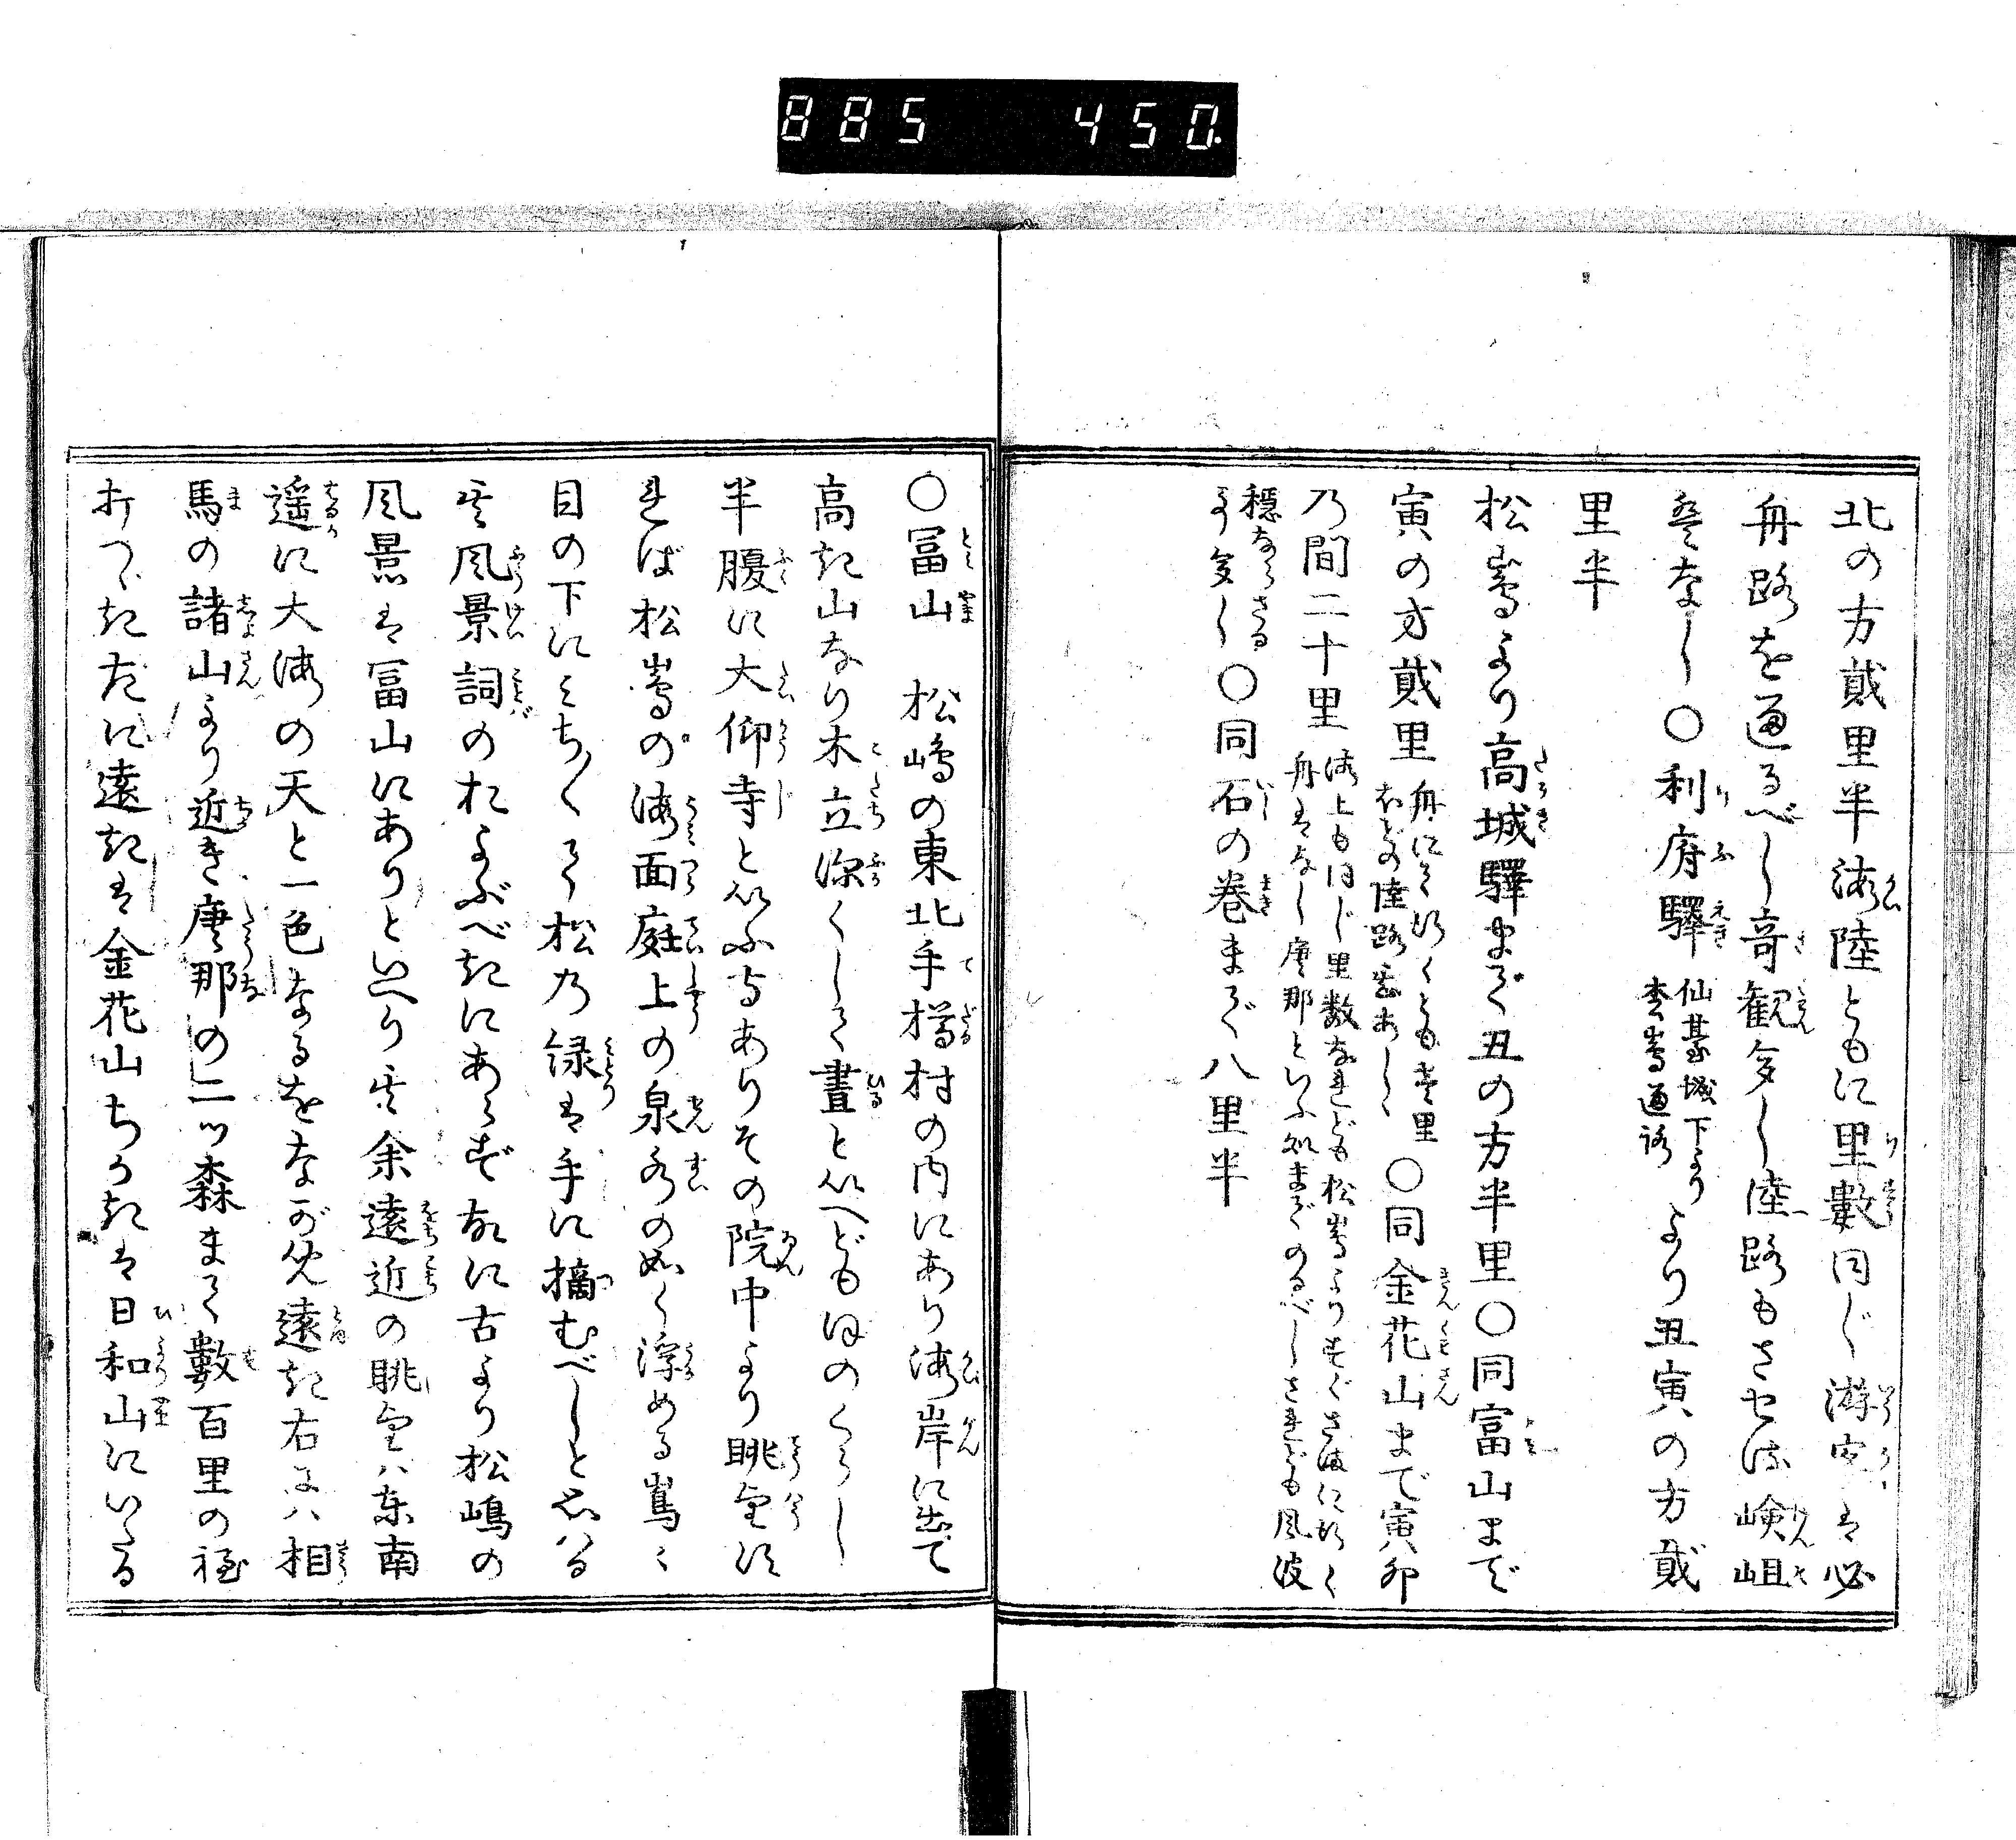 885 450.
北の方貳里半海陸ともに里數同じ游客は必
舟路を通るべし奇観多し陸路もさせる嶮岨
はなし〇利府驛仙臺城下より松嶋通路より丑寅の方貳
里半
松嶋より高城驛まで丑の方半里〇同富山まで
寅の方貳里舟にて行くも壱里〇同金花山まで寅卯
乃間二十里海上も同じ里数なれども松嶋よりすぐさまに行く舟はなし唐那といふ処までのるべしされども風波
穏ならざるより多し〇同石の巻まで八里半
〇冨山 松嶋の東北手樽村の内にあり海岸に出て
高き山なり木立深くして晝といへどもほのくらし
半腹に大仰寺といふ寺ありその院中より眺望す
れば松嶋の海面庭上の泉水の如く浮める嶌々
目の下にみちたくて松乃緑は手に摘むべしと思はる
其風景詞のおよぶべきにあらず故に古より松嶋の
風景は冨山にありといへり其余遠近の眺望ハ東南
遥に大海の天と一色なるをながめ遠き右にハ相
馬の諸山より近き唐那の二ツ森まで數百里の程
打つゞき左に遠きは金花山ちかきは日和山にいたる